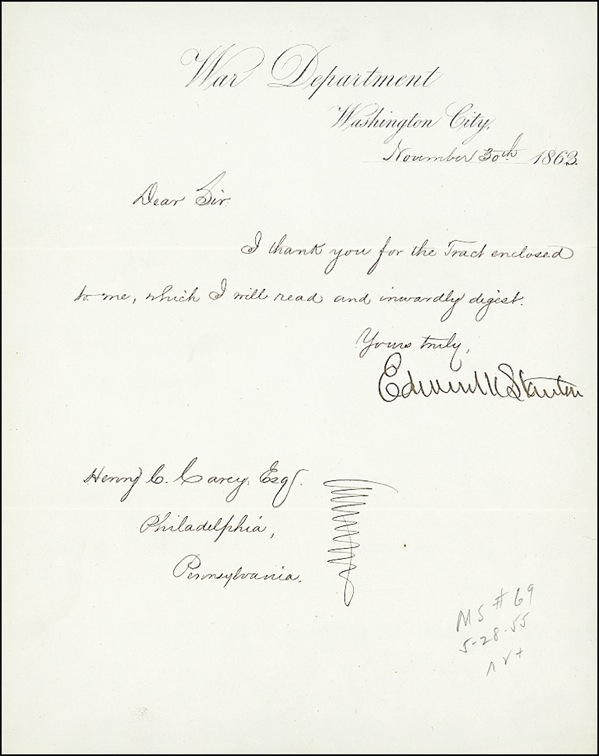 War Department
Washington City,
November 30th 1863.
Dear Sir.
I thank you for the Tract enclosed
to me, which I will read and inwardly digest.
Yours truly,
Edwin M Stanton
Henry C. Carey, Esq.
Philadelphia,
Pennsylvania.
MS #69
5-28-55